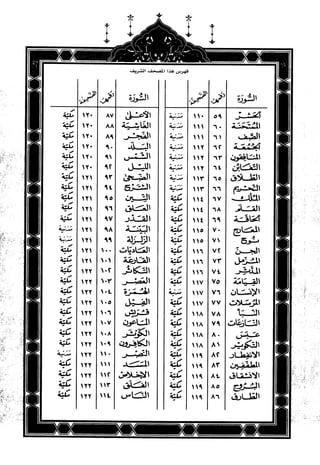 فهرس هذا المصحف الشريف
السورة رقمها الصفحة
الحشر ٥٩ ١١٠ مدنية
الممتحنة ٦٠ ١١١ مدنية
الصف ٦١ ١١١ مدنية
الجمعة ٦٢ ١١٢ مدنية
المنافقون ٦٣ ١١٢ مدنية
التغابن ٦٤ ١١٢ مدنية
الطلاق ٦٥ ١١٣ مدنية
التحريم ٦٦ ١١٣ مدنية
الملك ٦٧ ١١٤ مكية
القلم ٦٨ ١١٤ مكية
الحاقة ٦٩ ١١٤ مكية
المعارج ٧٠ ١١٥ مكية
نوح ٧١ ١١٥ مكية
الجن ٧٢ ١١٦ مكية
المزمل ٧٣ ١١٦ مكية
المدثر ٧٤ ١١٦ مكية
القيامة ٧٥ ١١٧ مكية
الإنسان ٧٦ ١١٧ مدنية
المرسلات ٧٧ ١١٧ مكية
النبأ ٧٨ ١١٨ مكية
النازعات ٧٩ ١١٨ مكية
عبس ٨٠ ١١٨ مكية
التكوير ٨١ ١١٨ مكية
الانفطار ٨٢ ١١٩ مكية
المطففين ٨٣ ١١٩ مكية
الانشقاق ٨٤ ١١٩ مكية
البروج ٨٥ ١١٩ مكية
الطارق ٨٦ ١١٩ مكية
السورة رقمها الصفحة
الأعلى ٨٧ ١٢٠ مكية
الغاشية ٨٨ ١٢٠ مكية
الفجر ٨٩ ١٢٠ مكية
البلد ٩٠ ١٢٠ مكية
الشمس ٩١ ١٢٠ مكية
الليل ٩٢ ١٢٠ مكية
الضحى ٩٣ ١٢١ مكية
الشرح ٩٤ ١٢١ مكية
التين ٩٥ ١٢١ مكية
العلق ٩٦ ١٢١ مكية
القدر ٩٧ ١٢١ مكية
البينة ٩٨ ١٢١ مدنية
الزلزلة ٩٩ ١٢١ مدنية
العاديات ١٠٠ ١٢١ مكية
القارعة ١٠١ ١٢١ مكية
التكاثر ١٠٢ ١٢٢ مكية
العصر ١٠٣ ١٢٢ مكية
الهمزة ١٠٤ ١٢٢ مكية
الفيل ١٠٥ ١٢٢ مكية
قريش ١٠٦ ١٢٢ مكية
الماعون ١٠٧ ١٢٢ مكية
الكوثر ١٠٨ ١٢٢ مكية
الكافرون ١٠٩ ١٢٢ مكية
النصر ١١٠ ١٢٢ مدنية
المسد ١١١ ١٢٢ مكية
الإخلاص ١١٢ ١٢٢ مكية
الفلق ١١٣ ١٢٢ مكية
الناس ١١٤ ١٢٢ مكية